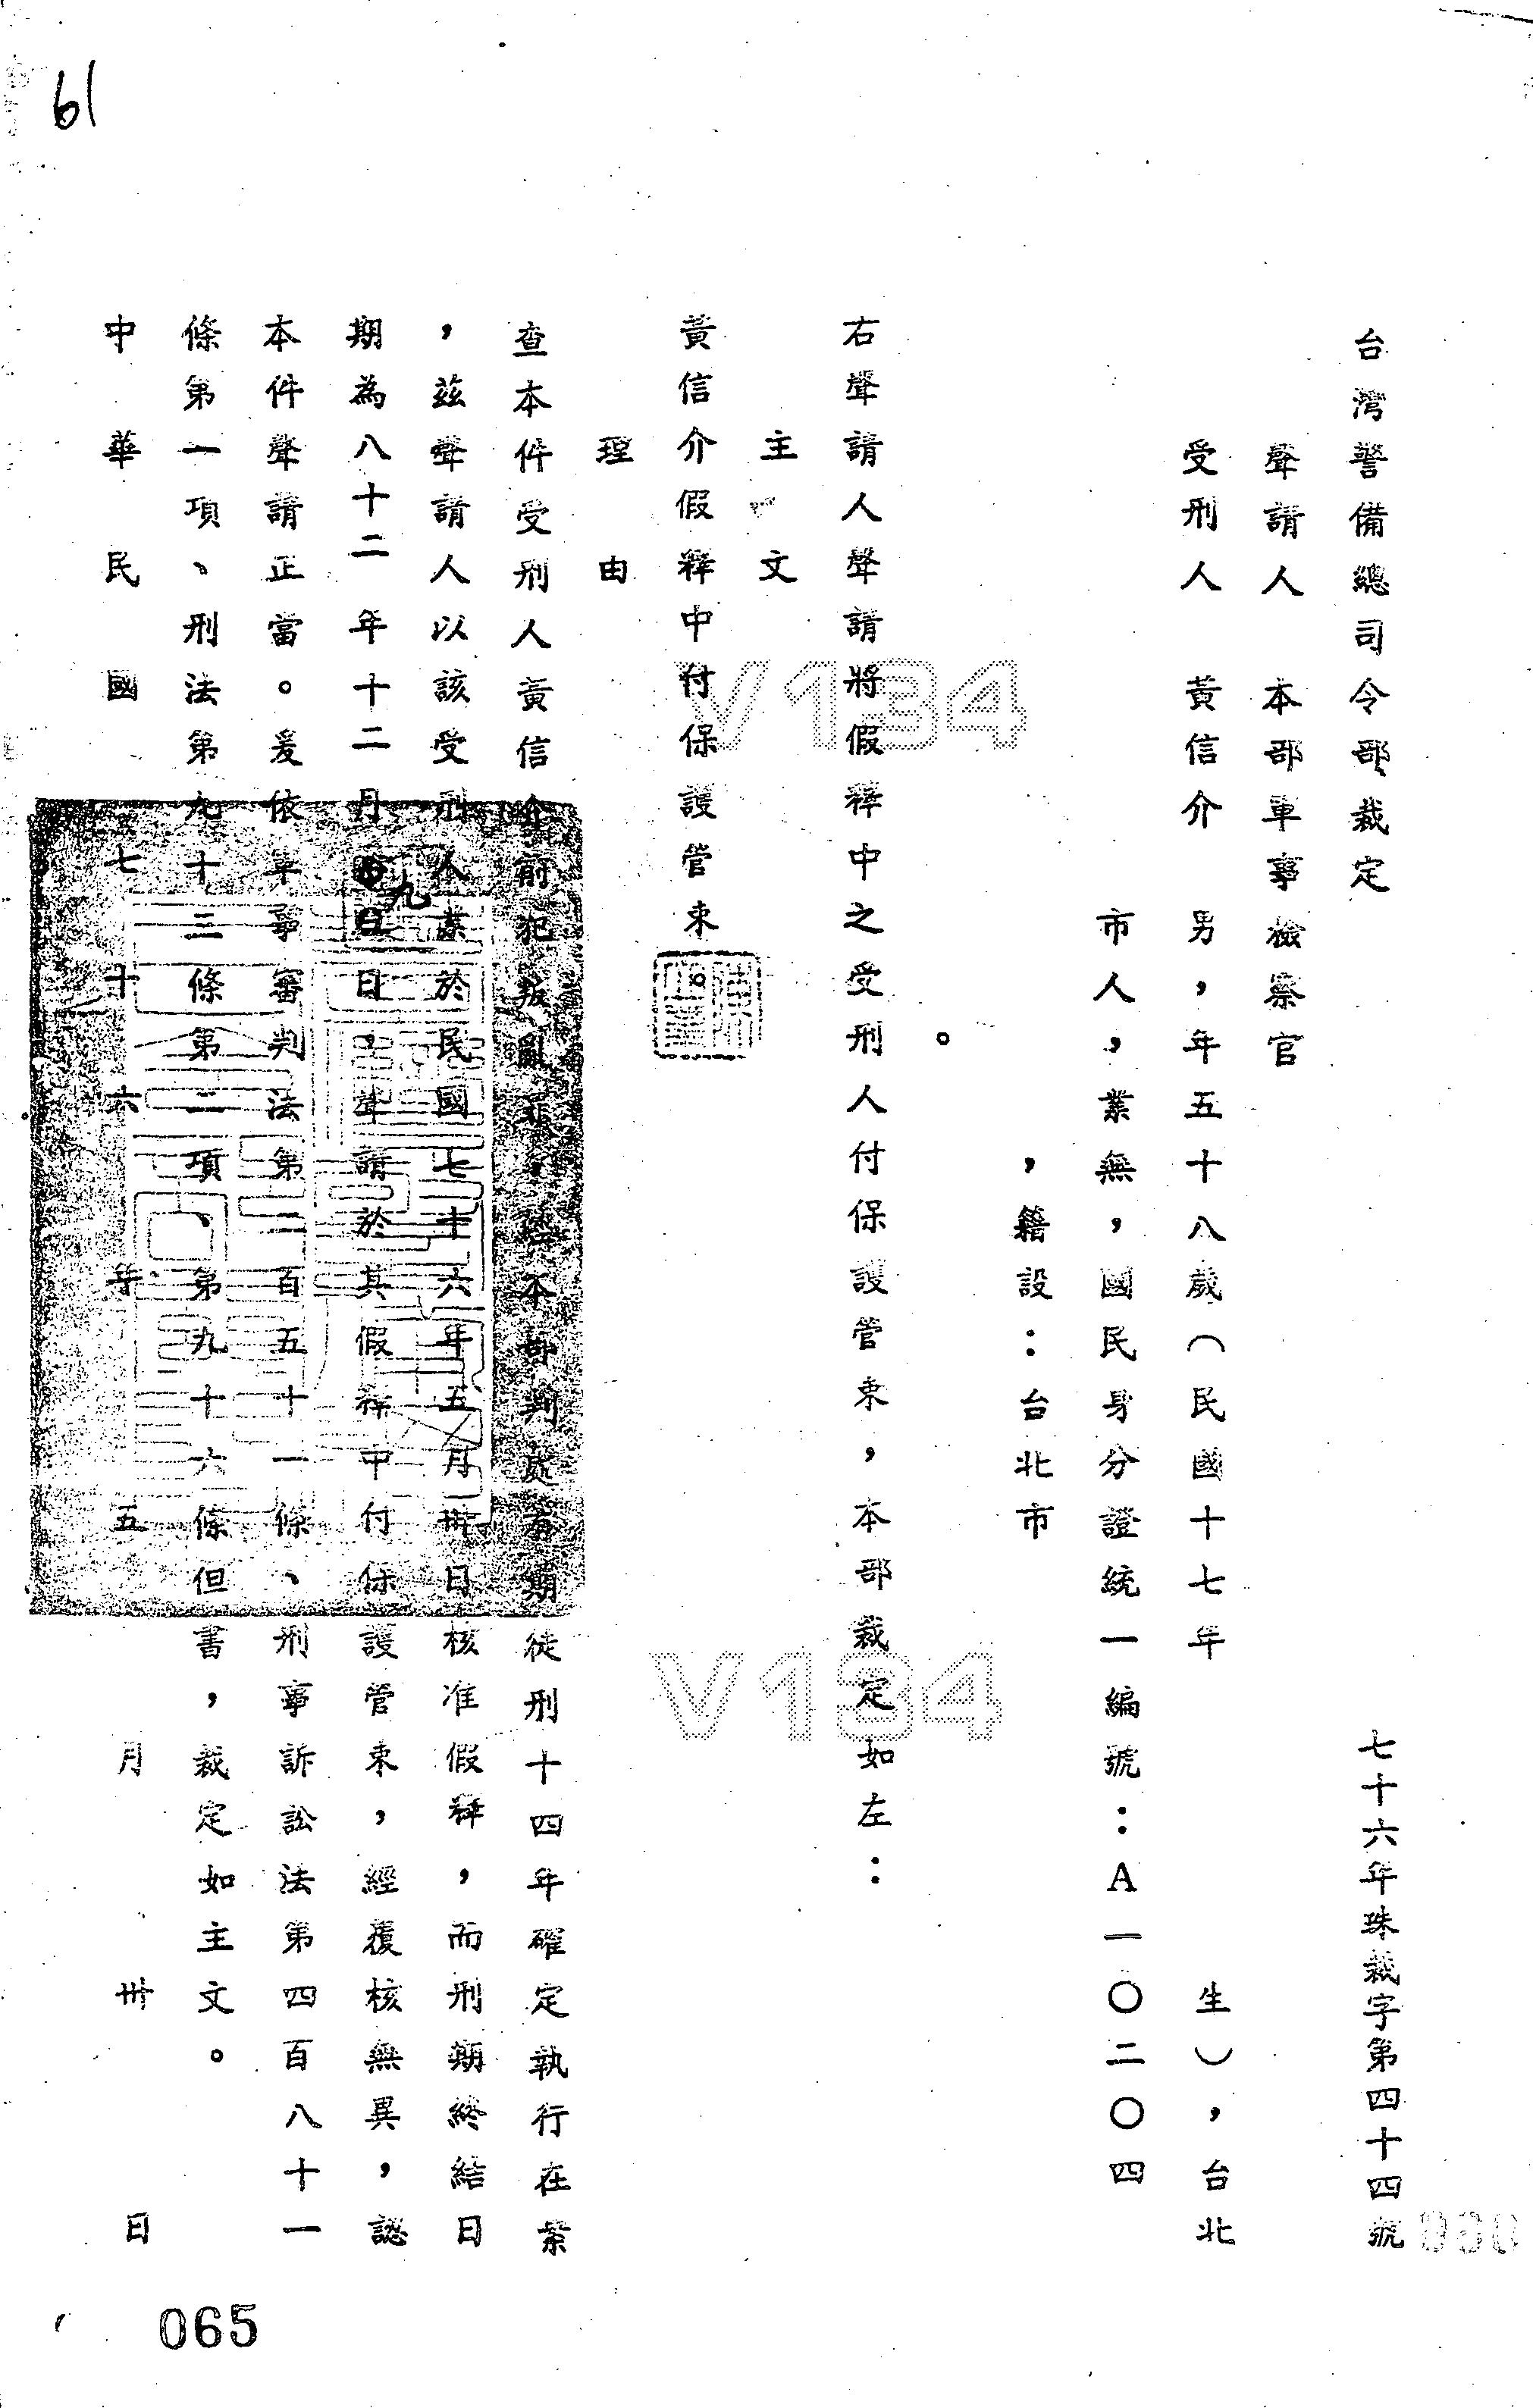 61
台灣警備總司令部裁定
七十六年珠裁字第四十四號
聲請人　本部軍事檢察官
受刑人　黃信介　男，年五十八歲（民國十七年　生），台北
市人，業無，國民身分證統一編號：A一〇二〇四
，籍設：台北市
。
右聲請人聲請將假釋中之受刑人付保護管束，本部裁定如左：
主文
黃信介假釋中付保護管束。
理由
查本件受刑人黃信介前犯叛亂罪，經本部判處有期徒刑十四年確定執行在案
，茲聲請人以該受刑人業於民國七十六年五月卅日核准假釋，而刑期終結日
期為八十二年十二月九日，聲請於其假釋中付保護管束，經覆核無異，認
本件聲請正當。爰依軍事審判法第二百五十一條、刑事訴訟法第四百八十一
條第一項、刑法第九十三條第二項、第九十六條但書，裁定如主文。
中華民國七十六年五月卅日
V134
V134
065